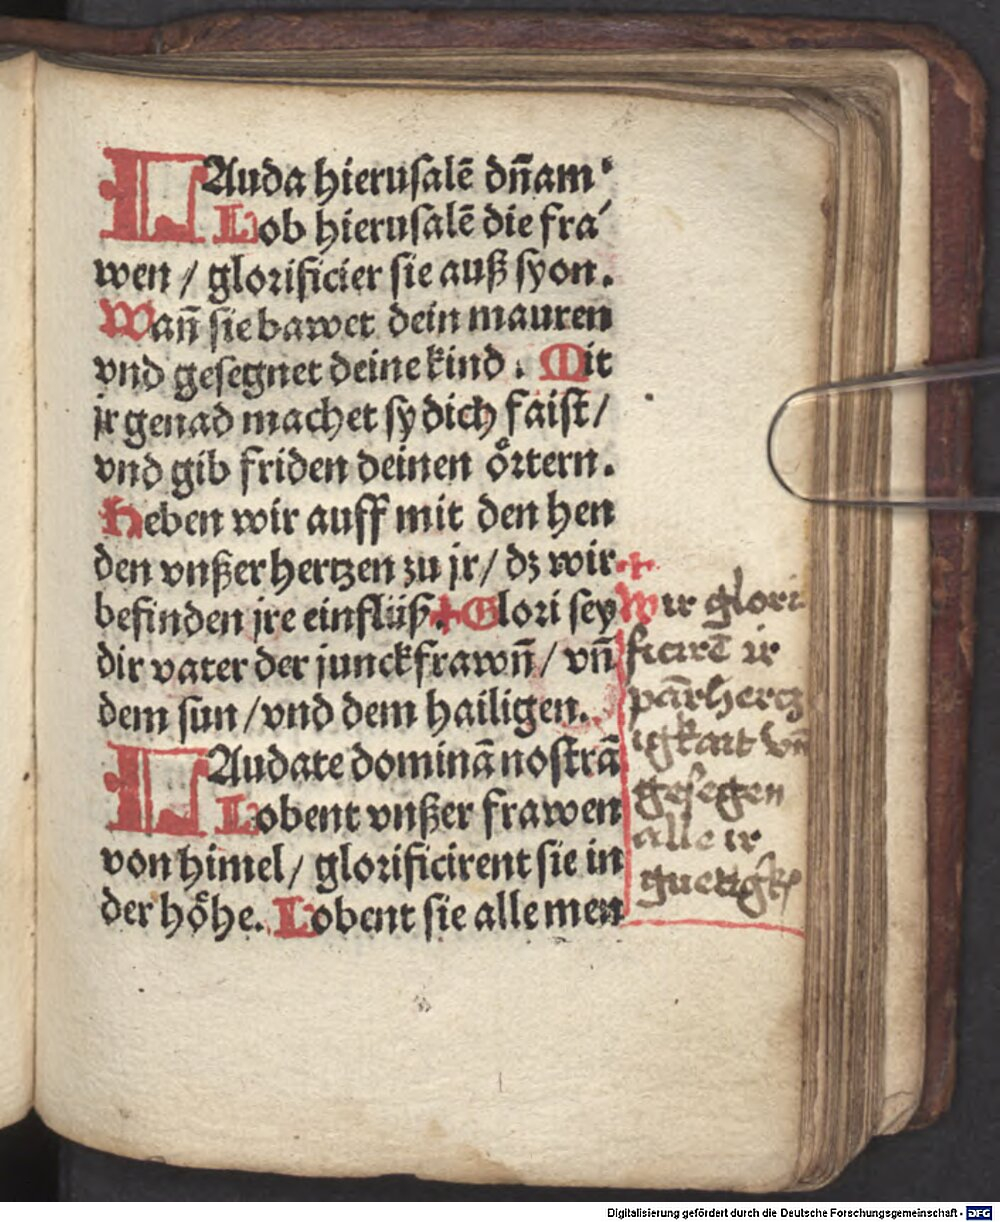 LAuda hierusalē dn̄am·
Lob hierusalē die fra
wen / glorificier sie auß syon.
Wañ sie bawet dein mauren
vnd gesegnet deine kind. Mit
jr genad machet sy dich faist /
vnd gib friden deinen oͤrtern.
Heben wir auff mit den hen
den vnßer hertzen zu jr / dz wir
befinden jre einflüß. + Glori sey
dir vater der junckfrawn̄ / vn̄
dem sun / vnd dem hailigen.
LAudate dominā nostrā
Lobent vnßer frawen
von himel / glorificirent sie in
der hoͤhe. Lobent sie alle men
+
Wir glori
ficirē ir
pārhercz
igkait vn̄
gesegen
alle ir
Digitalisierung gefördert durch die Deutsche Forschungsgemeinschaft - DFG